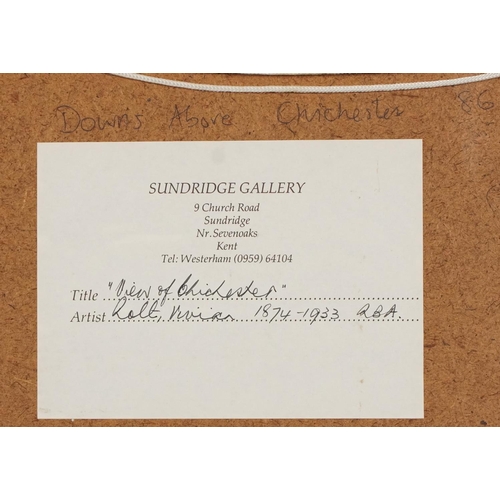 Downs Above Chichester 86
SUNDRIDGE GALLERY
9 Church Road
Sundridge
Nr.Sevenoaks
Kent
Tel: Westerham (0959) 64104
Title "View of Chichester"
Artist Rolt, Vivian 1874-1933 RBA.